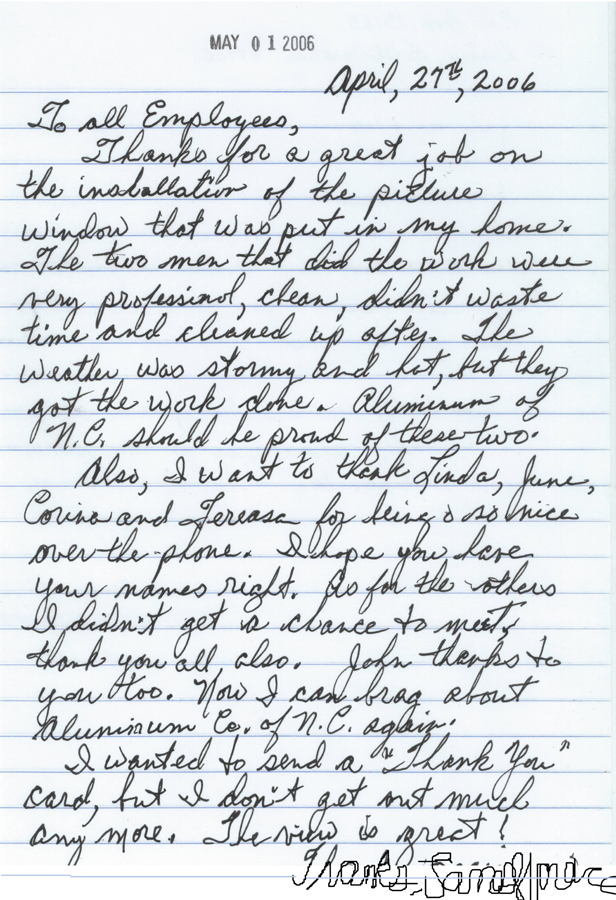 MAY 01 2006
April, 27th, 2006
To all Employees,
Thanks for a great job on
the installation of the picture
window that was put in my home.
The two men that did the work were
very professinol, clean, didn't waste
time and cleaned up after. The
weather was stormy and hot, but they
got the work done. Aluminum of
N.C. should be proud of these two.
Also, I want to thank Linda, June,
Corina and Tereasa for being so nice
over-the-phone. I hope you have
your names right. As for the others
I didn't get a chance to meet,
thank you all, also. John thanks to
you too. Now I can brag about
Aluminum Co. of N.C. again.
I wanted to send a "Thank You"
card, but I don't get out much
any more. The view is great!
Thanks,